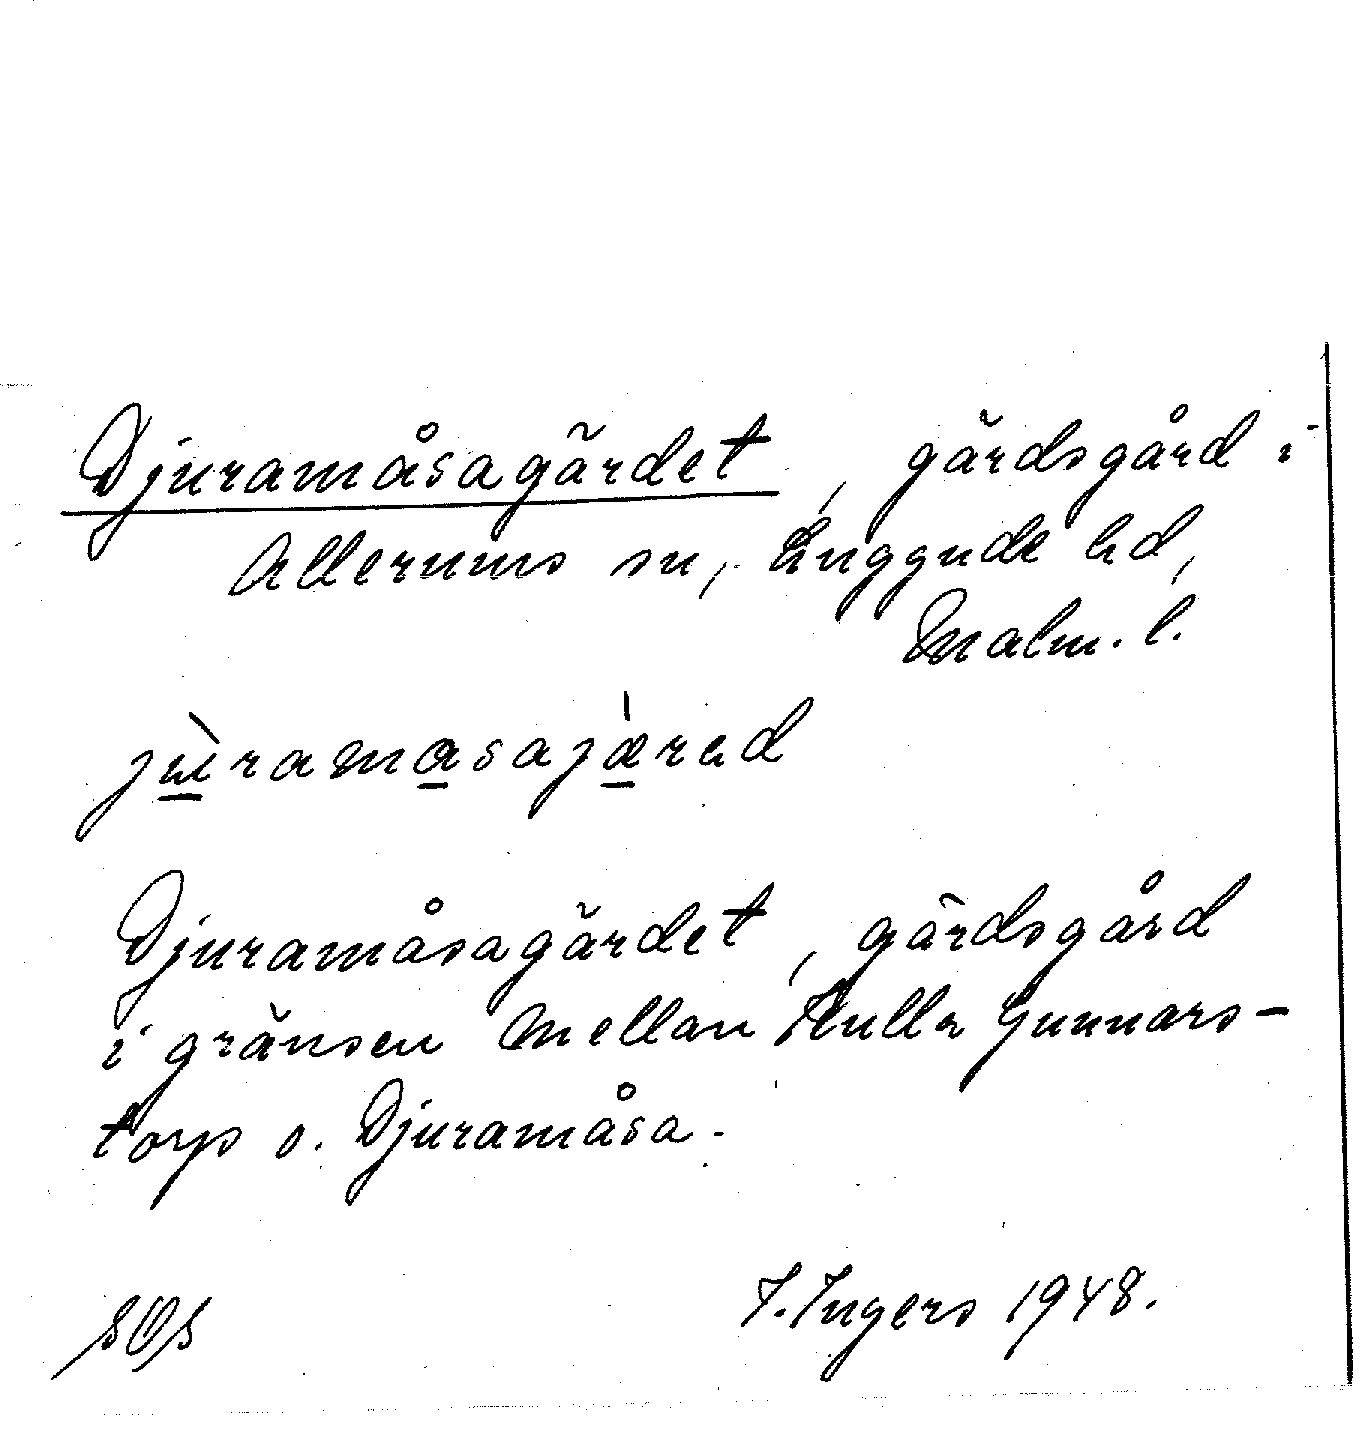 Djuramåsagärdet, gärdsgård i
Allerums sn, Luggude hd,
Malm. l.
Djuramåsagärdet, gärdsgård
i gränsen mellan Kulla Gunnars-
torp o. Djuramåsa.
I. Ingers 1948.